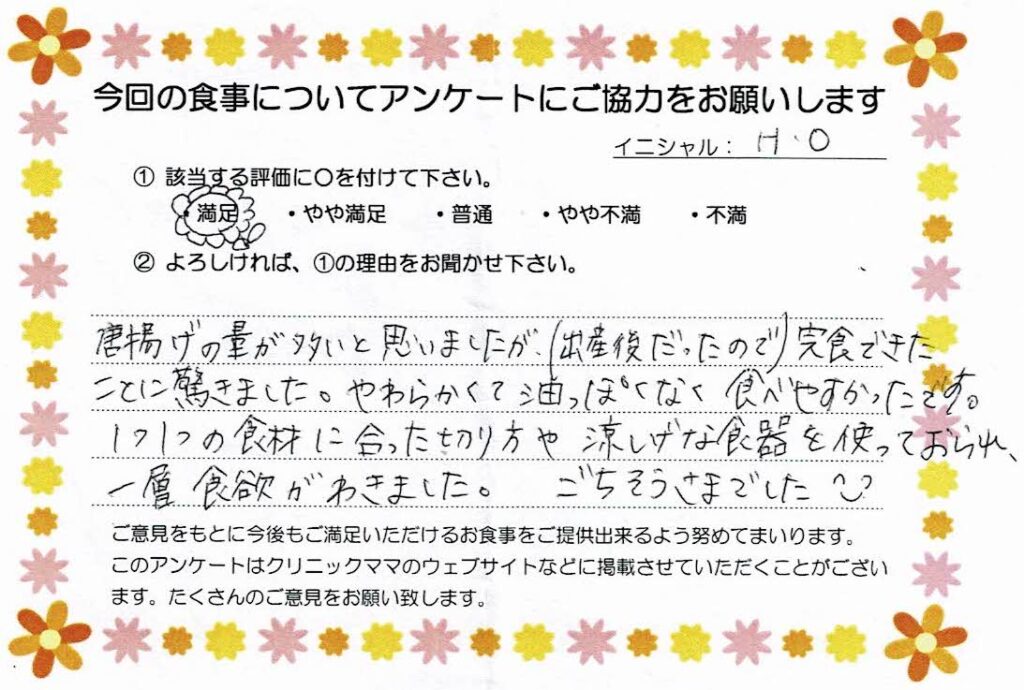 今回の食事についてアンケートにご協力をお願いします
イニシャル： H・O
① 該当する評価に〇を付けて下さい。
・満足 ・やや満足 ・普通 ・やや不満 ・不満
② よろしければ、①の理由をお聞かせ下さい。
唐揚げの量が多いと思いましたが、(出産後だったので)完食できた
ことに驚きました。やわらかくて油っぽくなく食べやすかったです。
1つ1つの食材に合った切り方や涼しげな食器を使っておられ、
一層食欲がわきました。 ごちそうさまでした
ご意見をもとに今後もご満足いただけるお食事をご提供出来るよう努めてまいります。
このアンケートはクリニックママのウェブサイトなどに掲載させていただくことがござい
ます。たくさんのご意見をお願い致します。